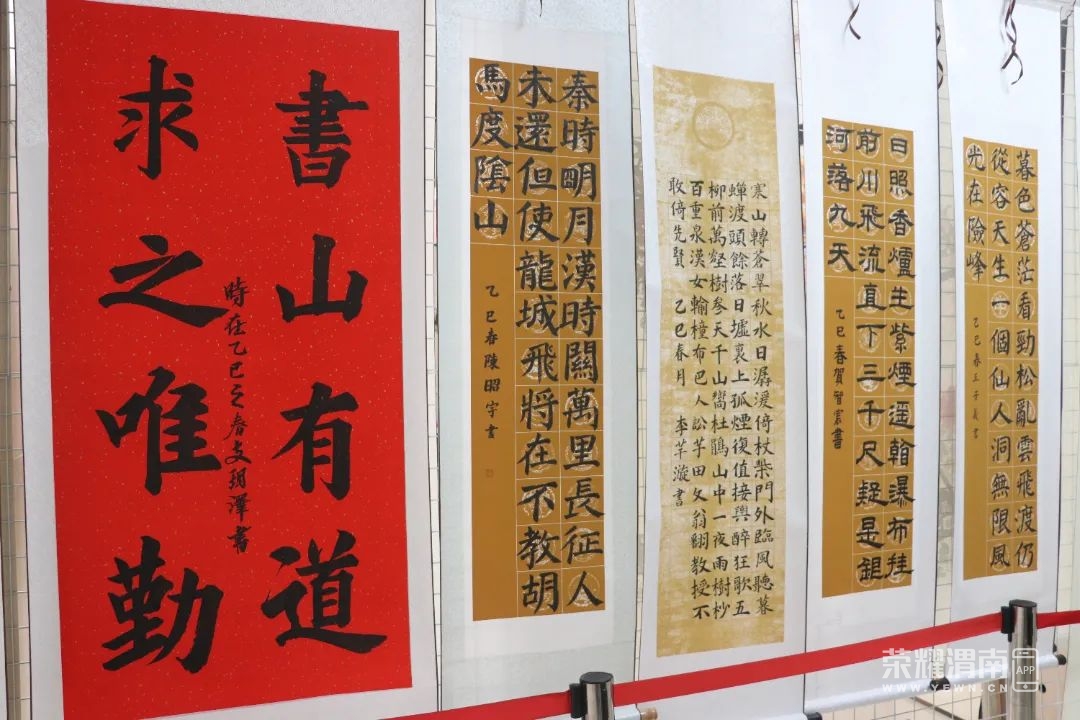 書山有道
求之唯勤
時在乙巳之春支玥澤書
秦時明月漢時關萬里長征人
未還但使龍城飛將在不教胡
馬度隂山
乙巳春陳昭宇書
寒山轉蒼翠秋水日潺湲倚杖柴門外臨風聽暮
蟬渡頭餘落日墟裏上孤煙復值接輿醉狂歌五
柳前萬壑樹參天千山響杜鵑山中一夜雨樹杪
百重泉漢女輸橦布巴人訟芋田文翁翻教授不
敢倚先賢 乙巳春月 李芊漩書
日照香爐生紫煙遥看瀑布挂
前川飛流直下三千尺疑是銀
河落九天
乙巳春賀智宸書
暮色蒼茫看勁松亂雲飛渡仍
從容天生一個仙人洞無限風
光在險峰
乙巳春王子義書
荣耀渭南 APP
WWW.YEWN.CN